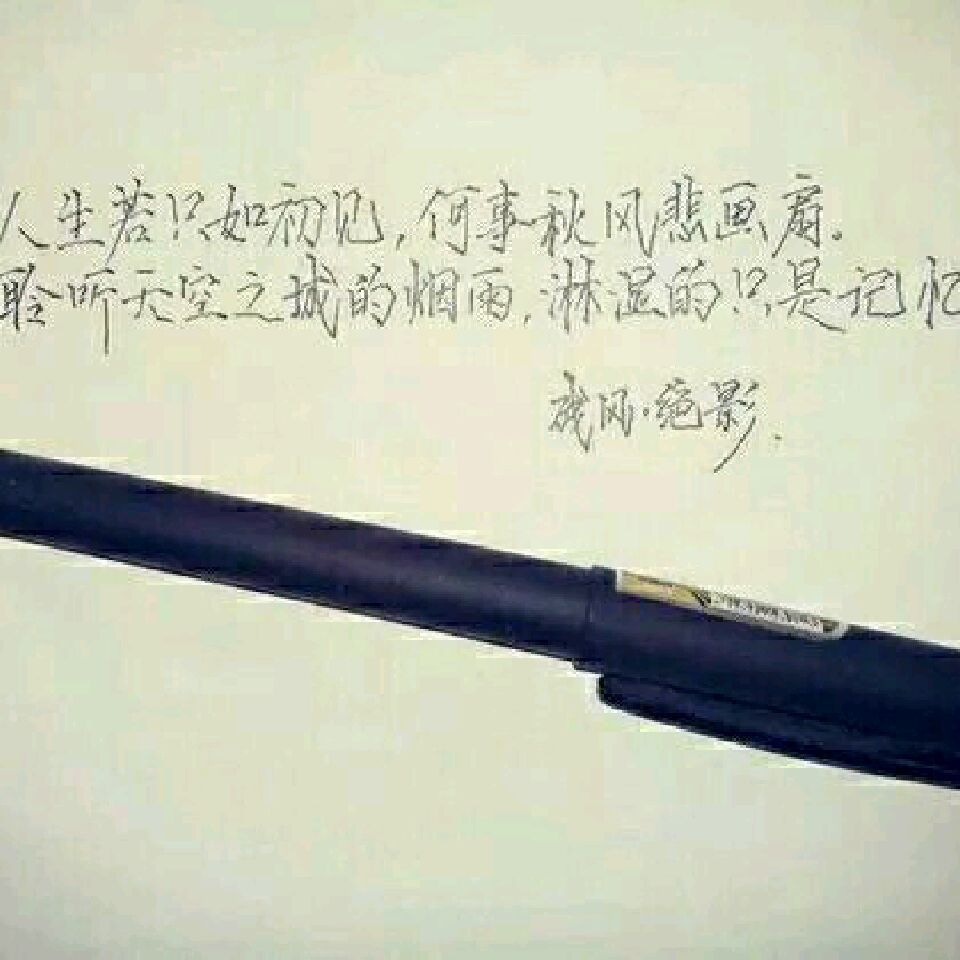 人生若只如初见,何事秋风悲画扇。
聆听天空之城的烟雨,淋湿的只是记忆
风·绝影.